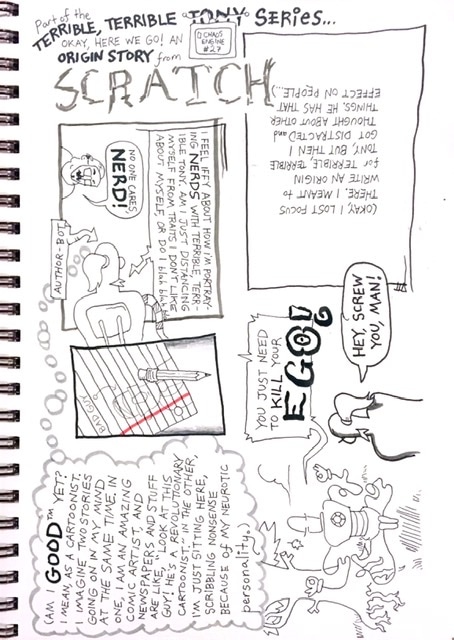 Part of the
TERRIBLE, TERRIBLE TONY SERIES...
OKAY, HERE WE GO! AN
ORIGIN STORY from
CHAOS
ENGINE
#27
SCRATCH
I FEEL IFFY ABOUT HOW I'M PORTRAY-
ING NERDS WITH TERRIBLE, TERR-
IBLE TONY. AM I JUST DISTANCING
MYSELF FROM TRAITS I DON'T LIKE
ABOUT MYSELF, OR DO I blah blah
NO ONE CARES,
NERD!
AUTHOR-BOT
BAD GUY
(AM I GOOD™ YET?
I MEAN AS A CARTOONIST.
I IMAGINE TWO STORIES
GOING ON IN MY MIND
AT THE SAME TIME. IN
ONE, I AM AN AMAZING
COMIC ARTIST, AND
NEWSPAPERS AND STUFF
ARE LIKE, "LOOK AT THIS
GUY! HE'S A REVOLUTIONARY
CARTOONIST." IN THE OTHER,
I'M JUST SITTING HERE,
SCRIBBLING NONSENSE
BECAUSE OF MY NEUROTIC
personality.)
YOU JUST NEED
TO KILL YOUR
EGO!
HEY, SCREW
YOU, MAN!
(OKAY, I LOST FOCUS
THERE. I MEANT to
WRITE AN ORIGIN
for TERRIBLE, TERRIBLE
TONY, BUT THEN I
GOT DISTRACTED and
THOUGHT ABOUT OTHER
THINGS. HE HAS THAT
EFFECT ON PEOPLE...)